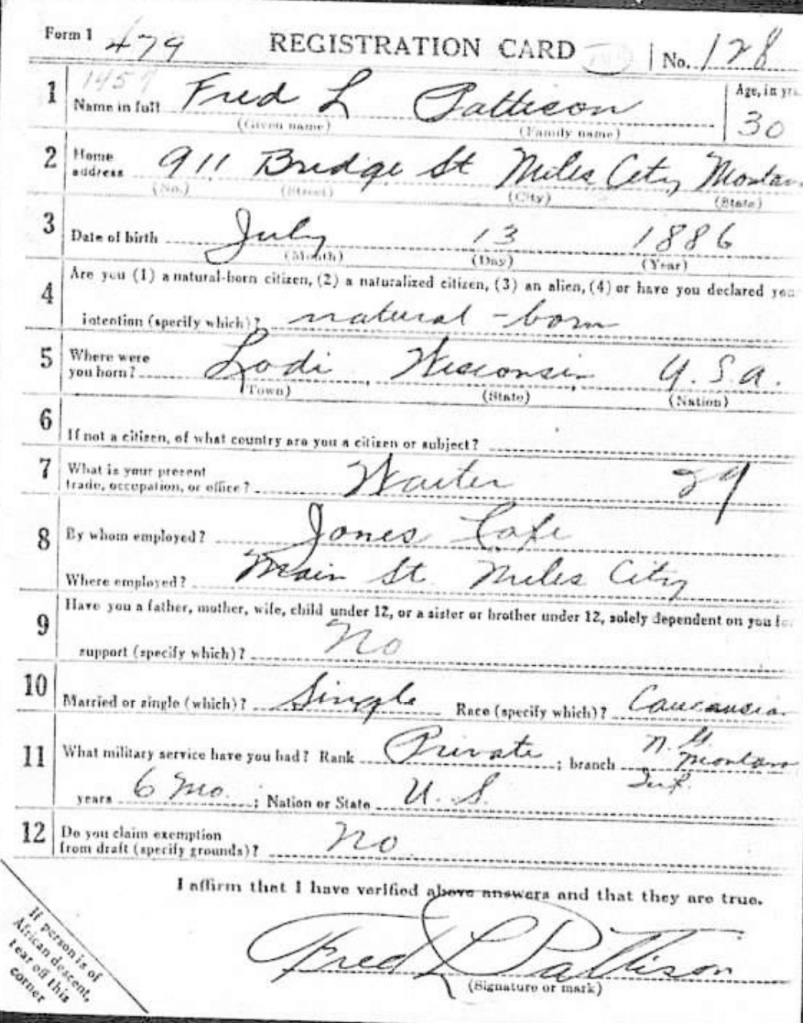 Form 1 479 REGISTRATION CARD No. 128
1 1457 Name in full Fred L Pattison Age, in yrs. 30
(Given name) (Family name)
2 Home address 911 Bridge St Miles City Montan
(No.) (Street) (City) (State)
3 Date of birth July 13 1886
(Month) (Day) (Year)
4 Are you (1) a natural-born citizen, (2) a naturalized citizen, (3) an alien, (4) or have you declared you
intention (specify which)? natural-born
5 Where were you born? Lodi, Wisconsin, U.S.A.
(Town) (State) (Nation)
6 If not a citizen, of what country are you a citizen or subject?
7 What is your present trade, occupation, or office? Waiter 29
8 By whom employed? Jones Cafe
Where employed? Main St. Miles City
9 Have you a father, mother, wife, child under 12, or a sister or brother under 12, solely dependent on you for
support (specify which)? No
10 Married or single (which)? Single Race (specify which)? Caucasian
11 What military service have you had? Rank Private; branch N.G. Montan Inf.
years 6 Mo.; Nation or State U.S.
12 Do you claim exemption from draft (specify grounds)? No
I affirm that I have verified above answers and that they are true.
Fred L Pattison
(Signature or mark)
If person is of
African descent,
tear off this
corner